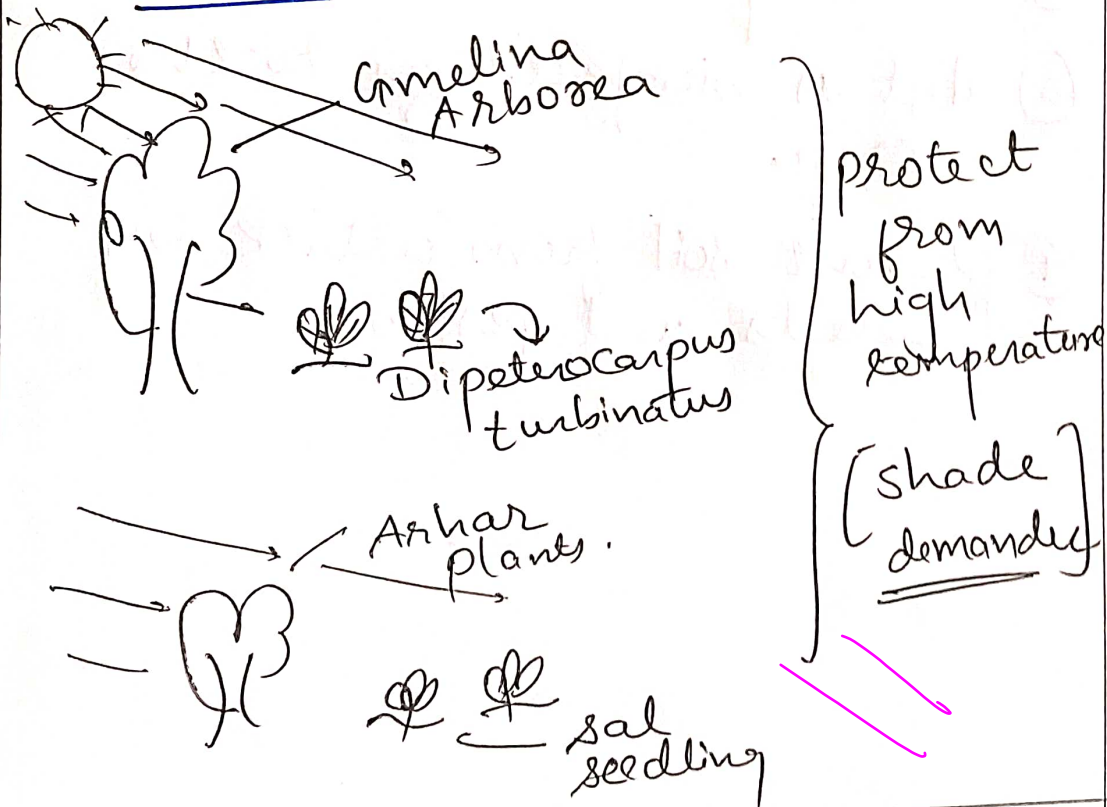 Gmelina
Arborea
Dipeterocarpus
turbinatus
Arhar
plants.
sal
seedling
protect
from
high
temperature
[shade
demander]